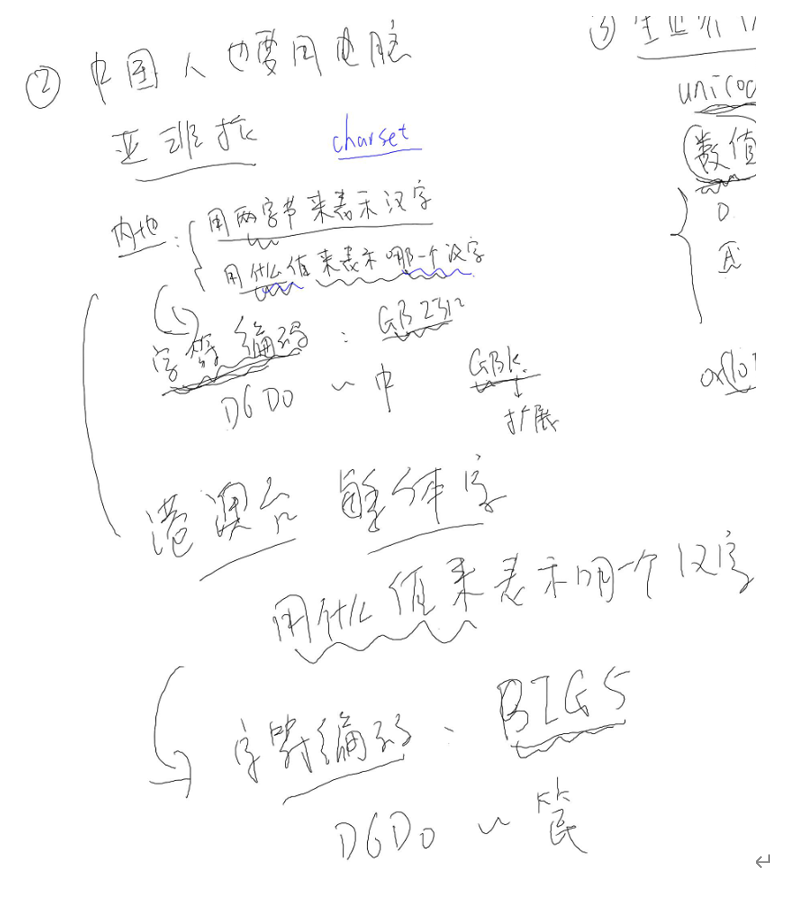 ② 中国人也要用电脑
亚非拉 charset
内地: 用两字节来表示汉字
用什么值来表示哪一个汉字
字符编码: GB2312
D6D0 ~ 中 GBK
扩展
港澳台 繁体字
用什么值来表示哪一个汉字
字符编码、BIG5
D6D0 ~ 笢
③
unicod
数值
0x